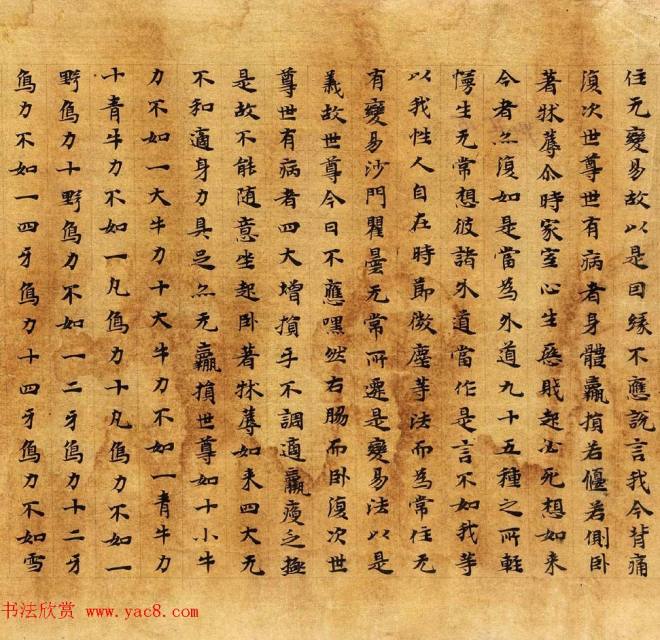 住无變易故以是因緣不應說言我今背痛
復次世尊世有病者身體羸損若偃若側卧
著牀蓐尒時家室心生惡賎起必死想如来
今者亦復如是當為外道九十五種之所輕
慢生无常想彼諸外道當作是言不如我等
以我性人自在時節微塵等法而為常住无
有變易沙門瞿曇无常所遷是變易法以是
義故世尊今日不應嘿然右脇而卧復次世
尊世有病者四大增損手不調適羸瘦乏極
是故不能随意坐起卧著牀蓐如来四大无
不和適身力具足亦无羸損世尊如十小牛
力不如一大牛力十大牛力不如一青牛力
十青牛力不如一凡象力十凡象力不如一
野象力十野象力不如一二牙象力十二牙
象力不如一四牙象力十四牙象力不如雪
书法欣赏 www.yac8.com